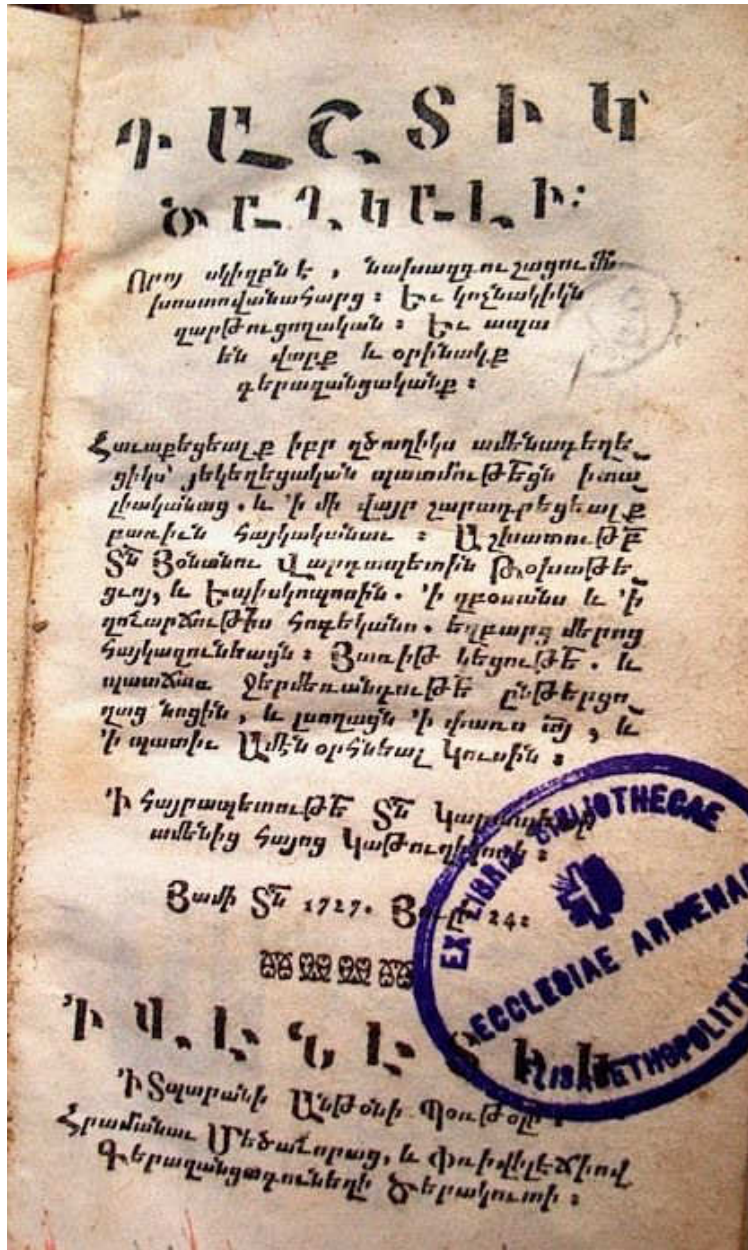 ԴԱՇՏԻԿ
ԾԱՂԿԱԼԻ։
Որոյ սկիզբն է , նախազգուշացումն
խոստովանահարց ։ Եւ կոչնակիկն
զարթուցողական ։ Եւ ապա
են վարք և օրինակք
գերազանցականք ։
Հաւաքեցեալք իբր զծաղիկս ամենագեղե֊
ցիկս՝ յեկեղեցական պատմութեցն իտա֊
լիականաց . և ՚ի մի վայր շարադրեցեալք
բառիւն հայկականաւ ։ Աշխատութբ
Տն Յօնանու Վարդապետին
ցւոյ, և Եպիսկոպոսին . ՚ի զբօսանս և ՚ի
զուարճութիս հոգեկանս . եղբարց մերոց
հայկազունեացն ։ Յառիթ կեցութե . և
պատճառ ջերմեռանդութե ընթերցո֊
ղաց նոցին , և լսողացն ՚ի փառս այ , և
՚ի պատիւ Ամէնօրհնեալ Կուսին ։
՚Ի հայրապետութե Տն
ամենից հայոց Կաթուղիկոսի ։
Յամի Տն 1727. 24։
՚Ի ՎԷՆԷՏԻԿ
՚Ի Տպարանի Անթօնի Պօռթօլի ։
Հրամանաւ Մեծաւորաց, և Փռիվիլէճիով
Գերազանցազունեղի Ծերակուտի ։
EX LIBRIS BIBLIOTHECAE
ECCLESIAE ARMENAE
ELISABETHOPOLITANAE